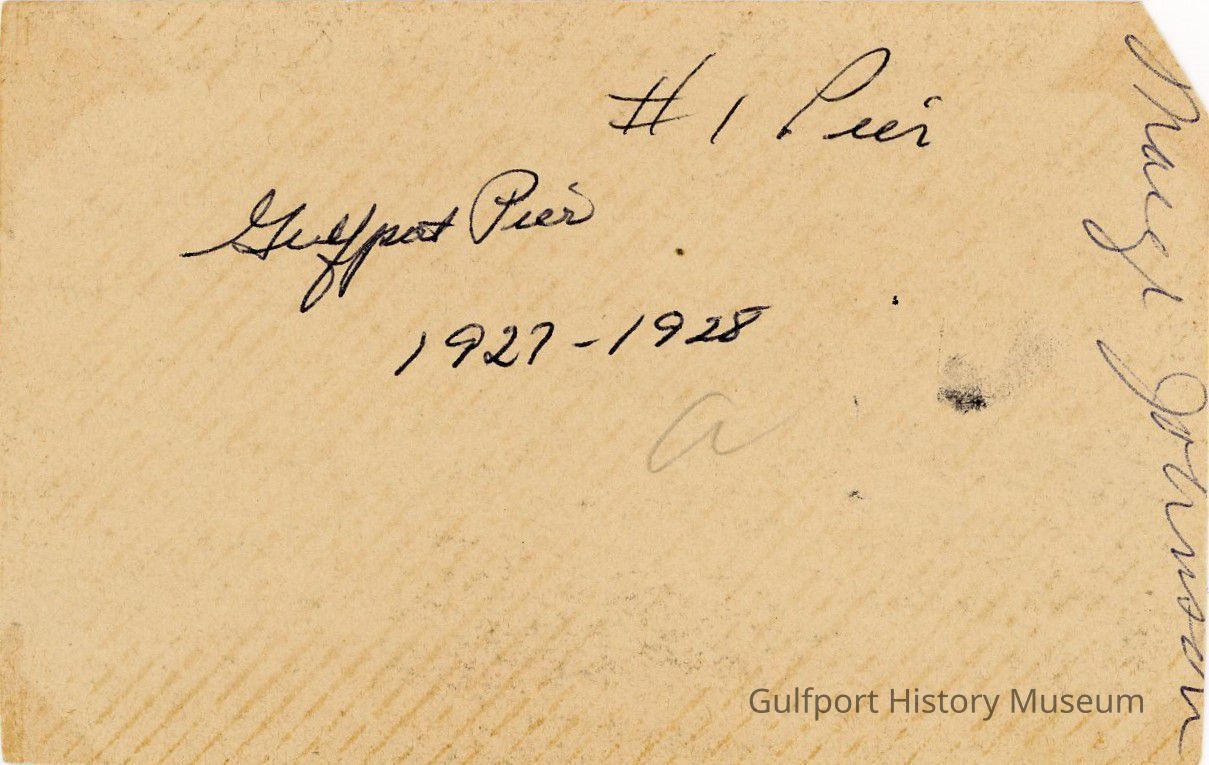 #1 Pier
Gulfport Pier
1927-1928
a
Marge Johnson
Gulfport History Museum